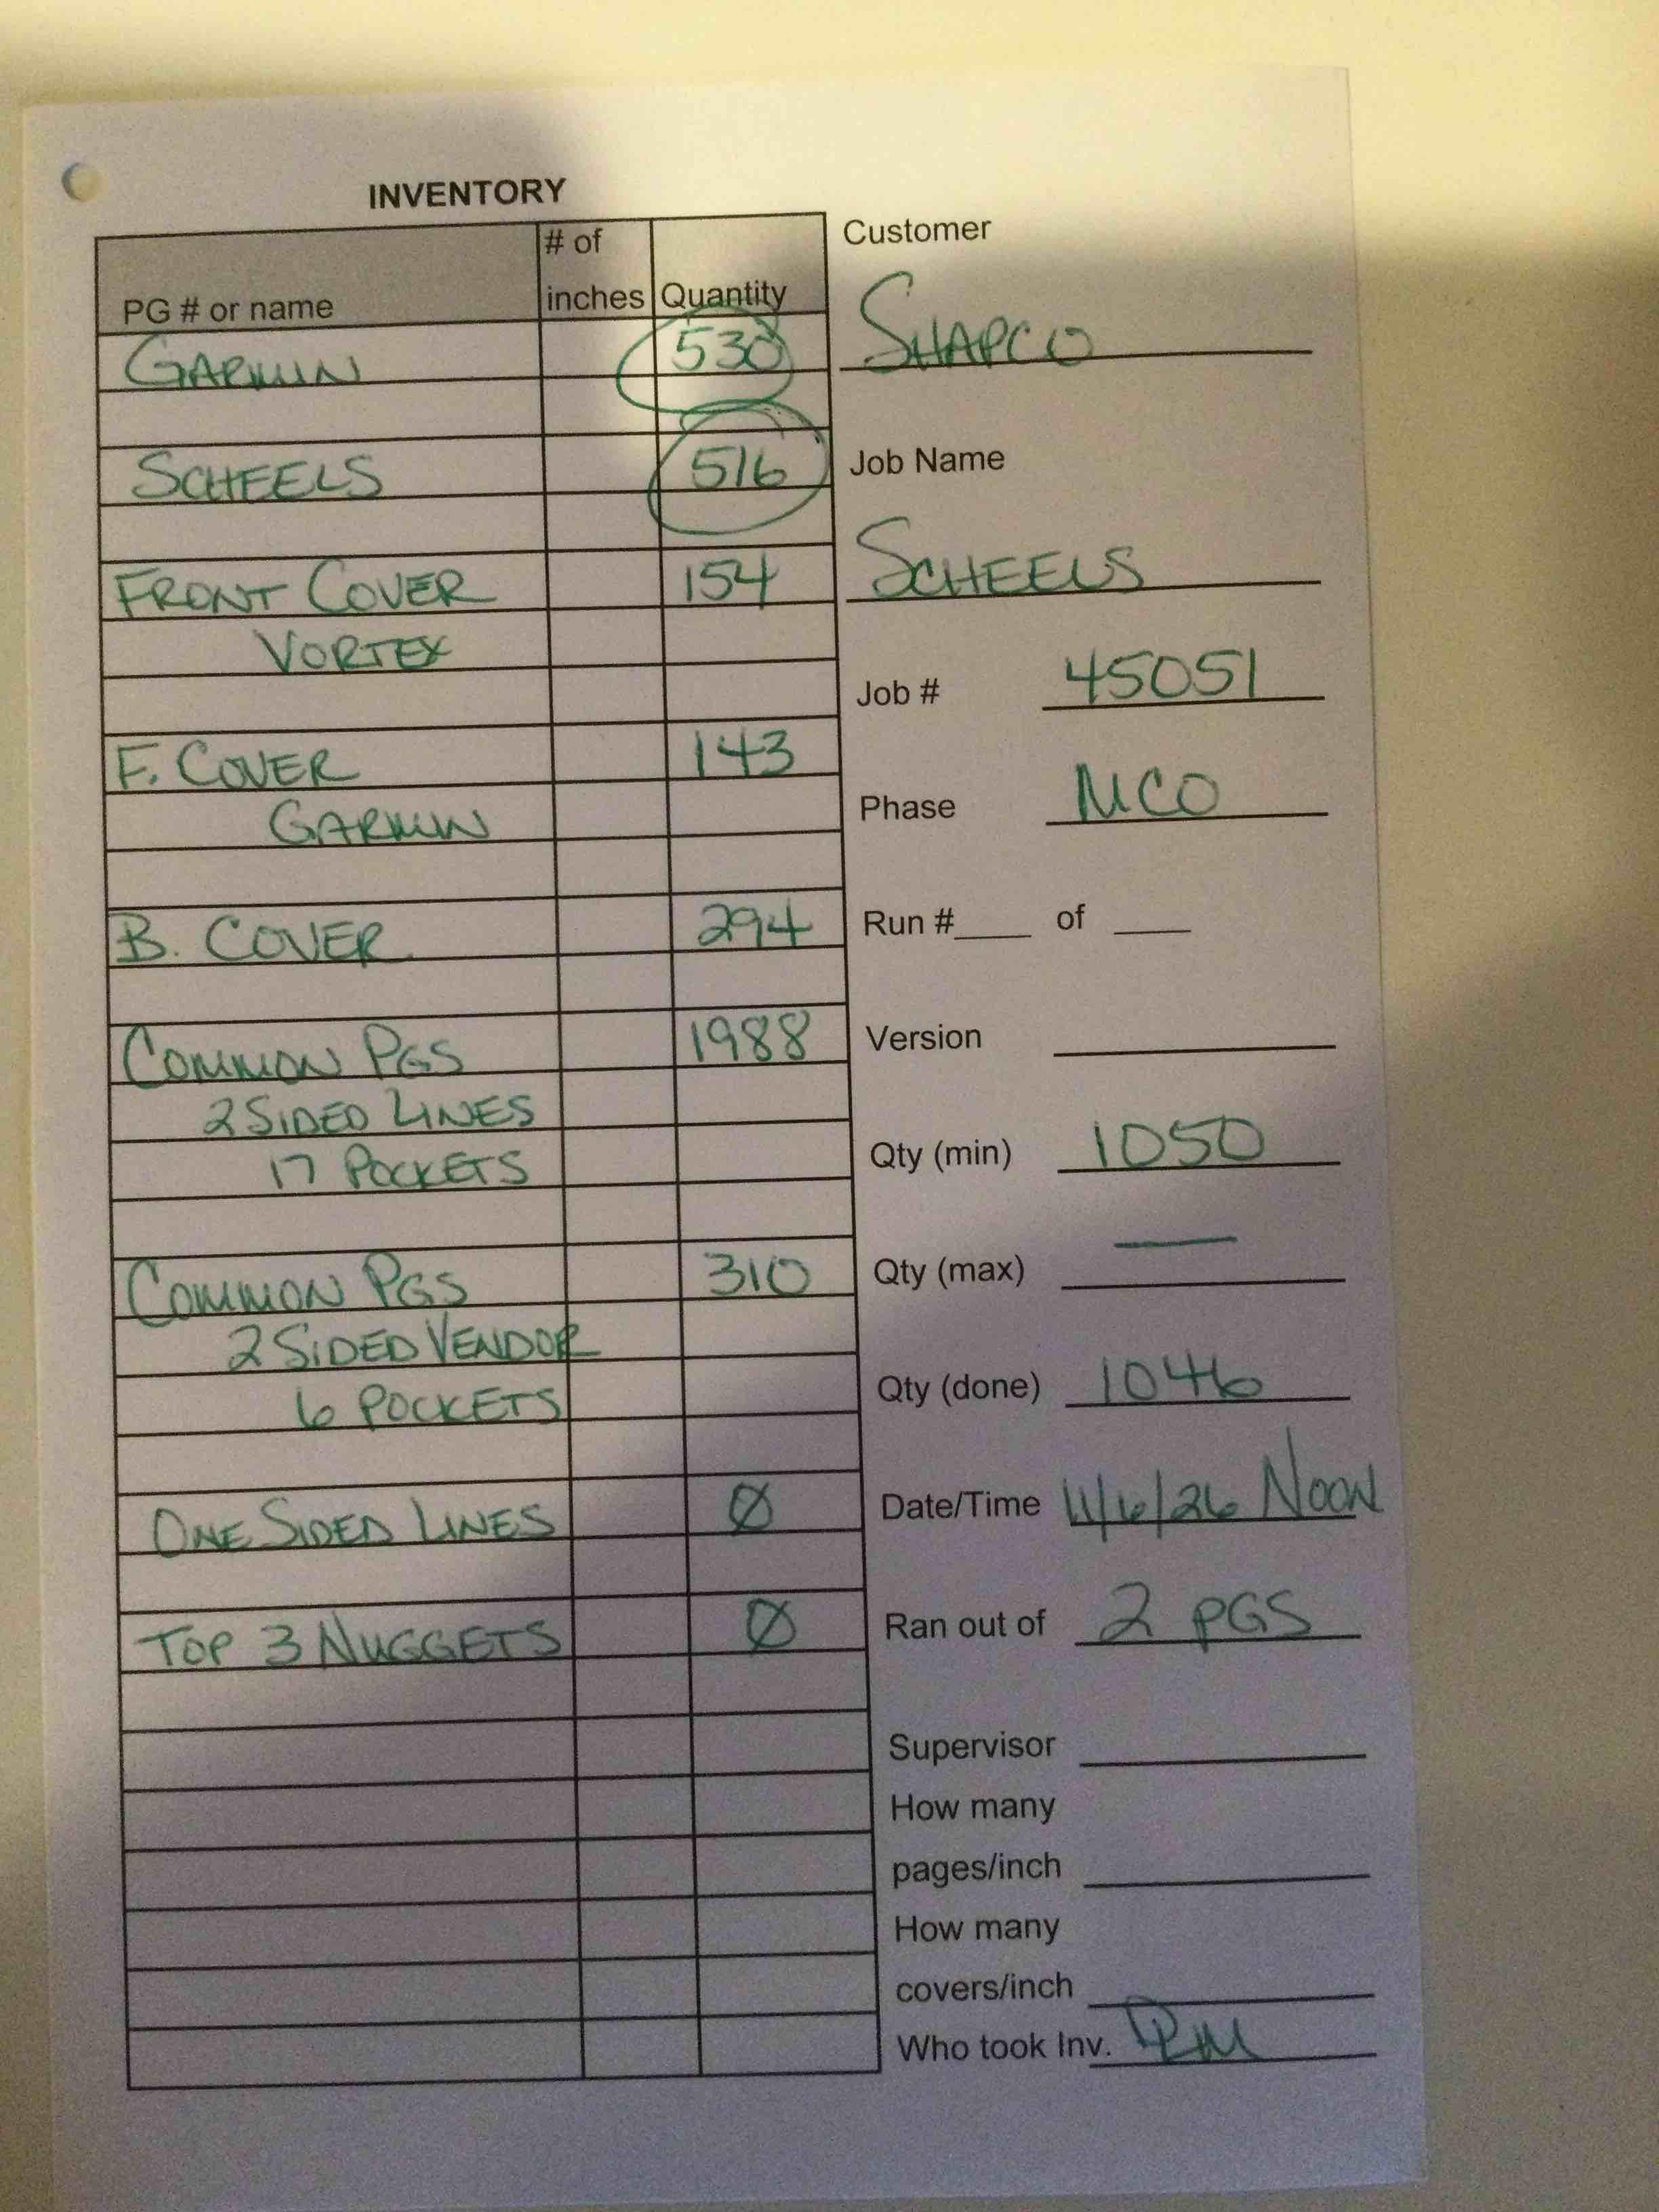 INVENTORY
PG # or name
# of inches
Quantity
GARMIN 530
SCHEELS 516
FRONT COVER 154
VORTEX
F. COVER 143
GARMIN
B. COVER 294
COMMON PGS 1988
2 SIDED LINES
17 POCKETS
COMMON PGS 310
2 SIDED VENDOR
6 POCKETS
ONE SIDED LINES Ø
TOP 3 NUGGETS Ø
Customer
SHAPCO
Job Name
SCHEELS
Job # 45051
Phase MCO
Run #____ of ____
Version
Qty (min) 1050
Qty (max) —
Qty (done) 1046
Date/Time 11/6/26 NOON
Ran out of 2 PGS
Supervisor
How many
pages/inch
How many
covers/inch
Who took Inv.